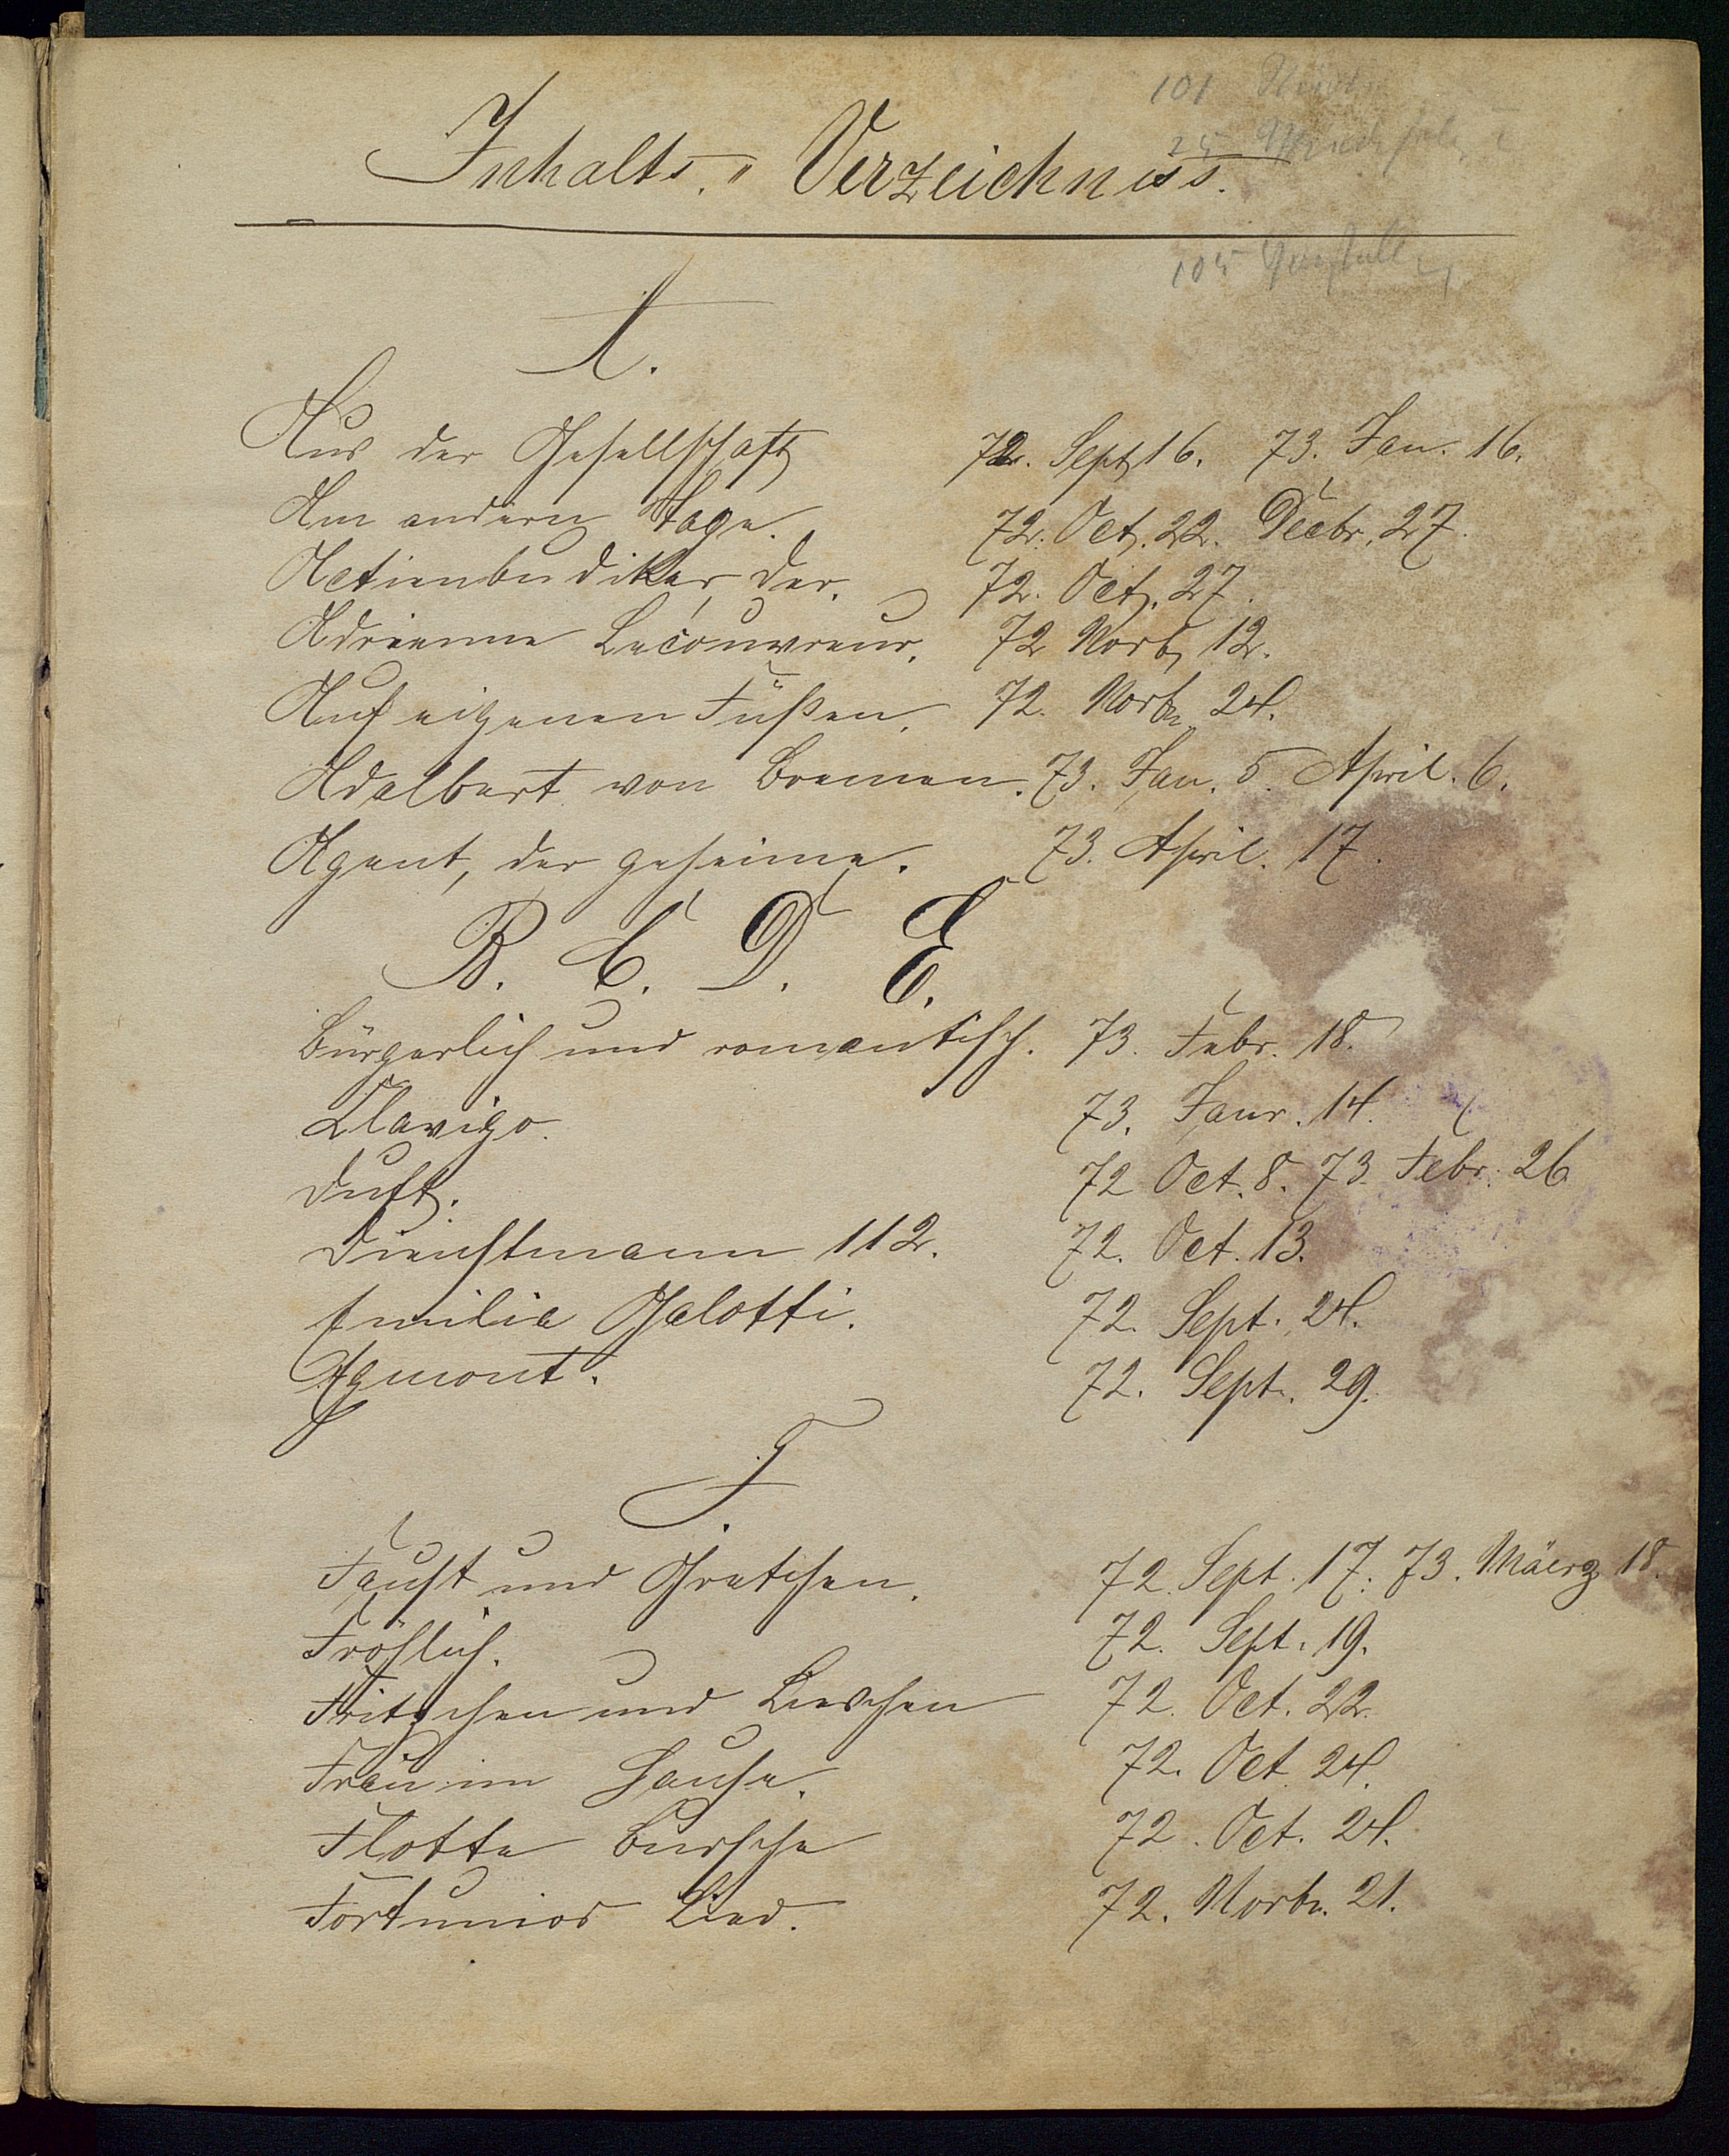 101
25
Inhalts-Verzeichniss.
105
A.
Aus der Gesellschaft 72. Sept 16. 73. Jan. 16.
Am andern Tage. 72. Oct. 22. Decbr. 27.
Actienbudiker, der. 72. Oct. 27.
Adrienne Lecouvreur. 72 Novb. 12.
Auf eigenen Füßen. 72. Novbr. 24.
Adalbert von Bremen. 73. Jan. 5. April. 6.
Agent, der geheime. 73. April. 17.
B. C. D. E.
Bürgerlich und romantisch. 73. Febr. 18.
Clavigo. 73. Janr. 14.
Duft. 72 Oct. 8. 73. Febr. 26
Dienstmann 112. 72. Oct. 13.
Emilia Galotti. 72. Sept. 24.
Egmont. 72. Sept. 29.
F.
Faust und Gretchen. 72. Sept. 17. 73. Mäerz 18.
Fröhlich. 72. Sept. 19.
Fritzchen und Lieschen 72. Oct. 22.
Frau im Hause. 72. Oct 24.
Flotte Bursche 72. Oct. 24.
Fortunios Lied. 72. Novbr. 21.